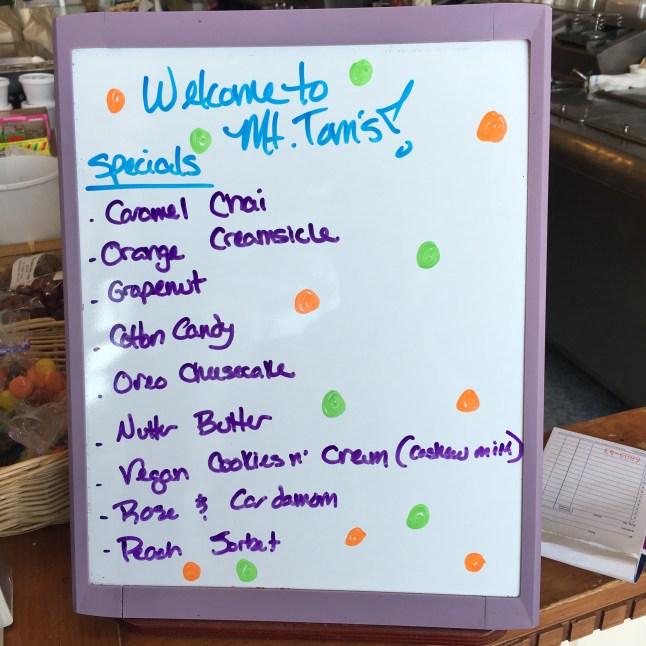 Welcome to
Mt. Tom's!
Specials
· Caramel Chai
· Orange Creamsicle
· Grapenut
· Cotton Candy
· Oreo Cheesecake
· Nutter Butter
· Vegan Cookies n' Cream (cashew milk)
· Rose & Cardamom
· Peach Sorbet